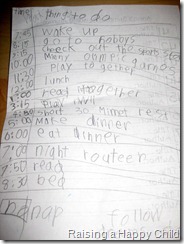 Time thing to do
wake up
go to hobbys
check out the sports store
10:00 Many olympic games
play together
11:30 lunch
1:00 read together
3:15 play Wii
short 30 Minnet rest
make dinner
6:00 eat dinner
7:00 night routeen
7:50 read
8:30 bed
nap
follow
Raising a Happy Child